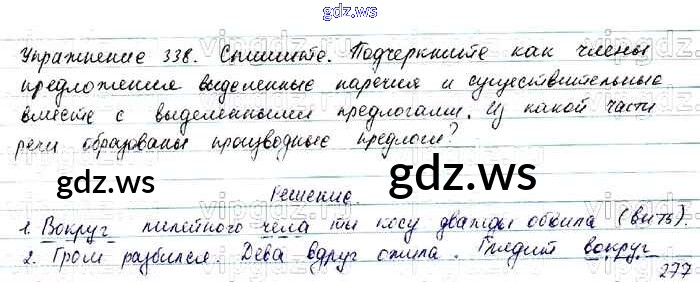 gdz.ws
Упражнение 338. Спишите. Подчеркните как члены
предложения выделенные наречия и существительные
вместе с выделенными предлогами. Из какой части
речи образованы производные предлоги?
gdz.ws gdz.ws
Решение.
1. Вокруг лилейного чела ты косу дважды обвила (вить).
2. Гром разбился. Дева вдруг ожила. Глядит вокруг
277